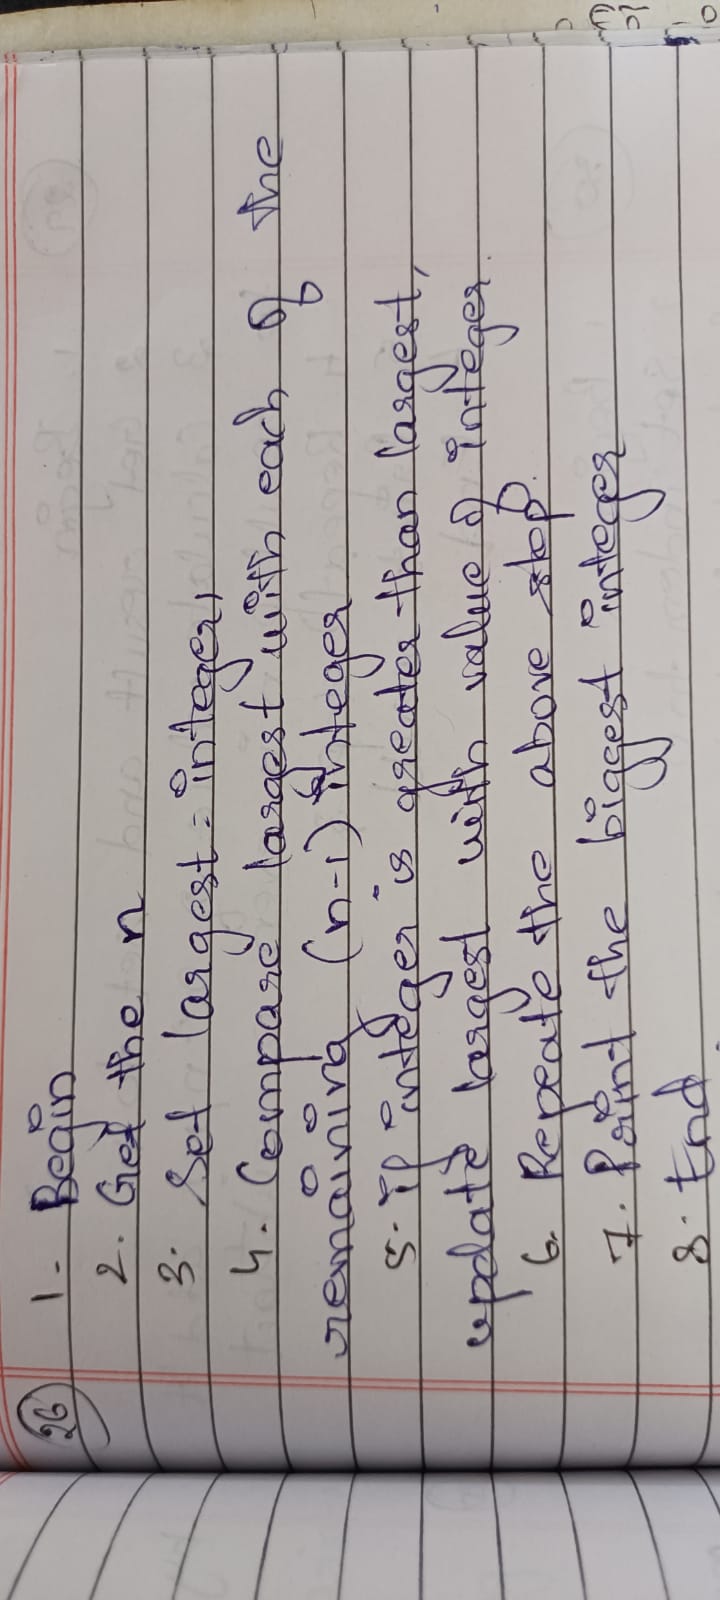 26
1. Begin
2. Get the n
3. Set largest = integer,
4. Compare largest with each of the
remaining (n-1) integer
5. If integer is greater than largest,
update largest with value of integer.
6. Repeate the above step.
7. Print the biggest integer
8. End